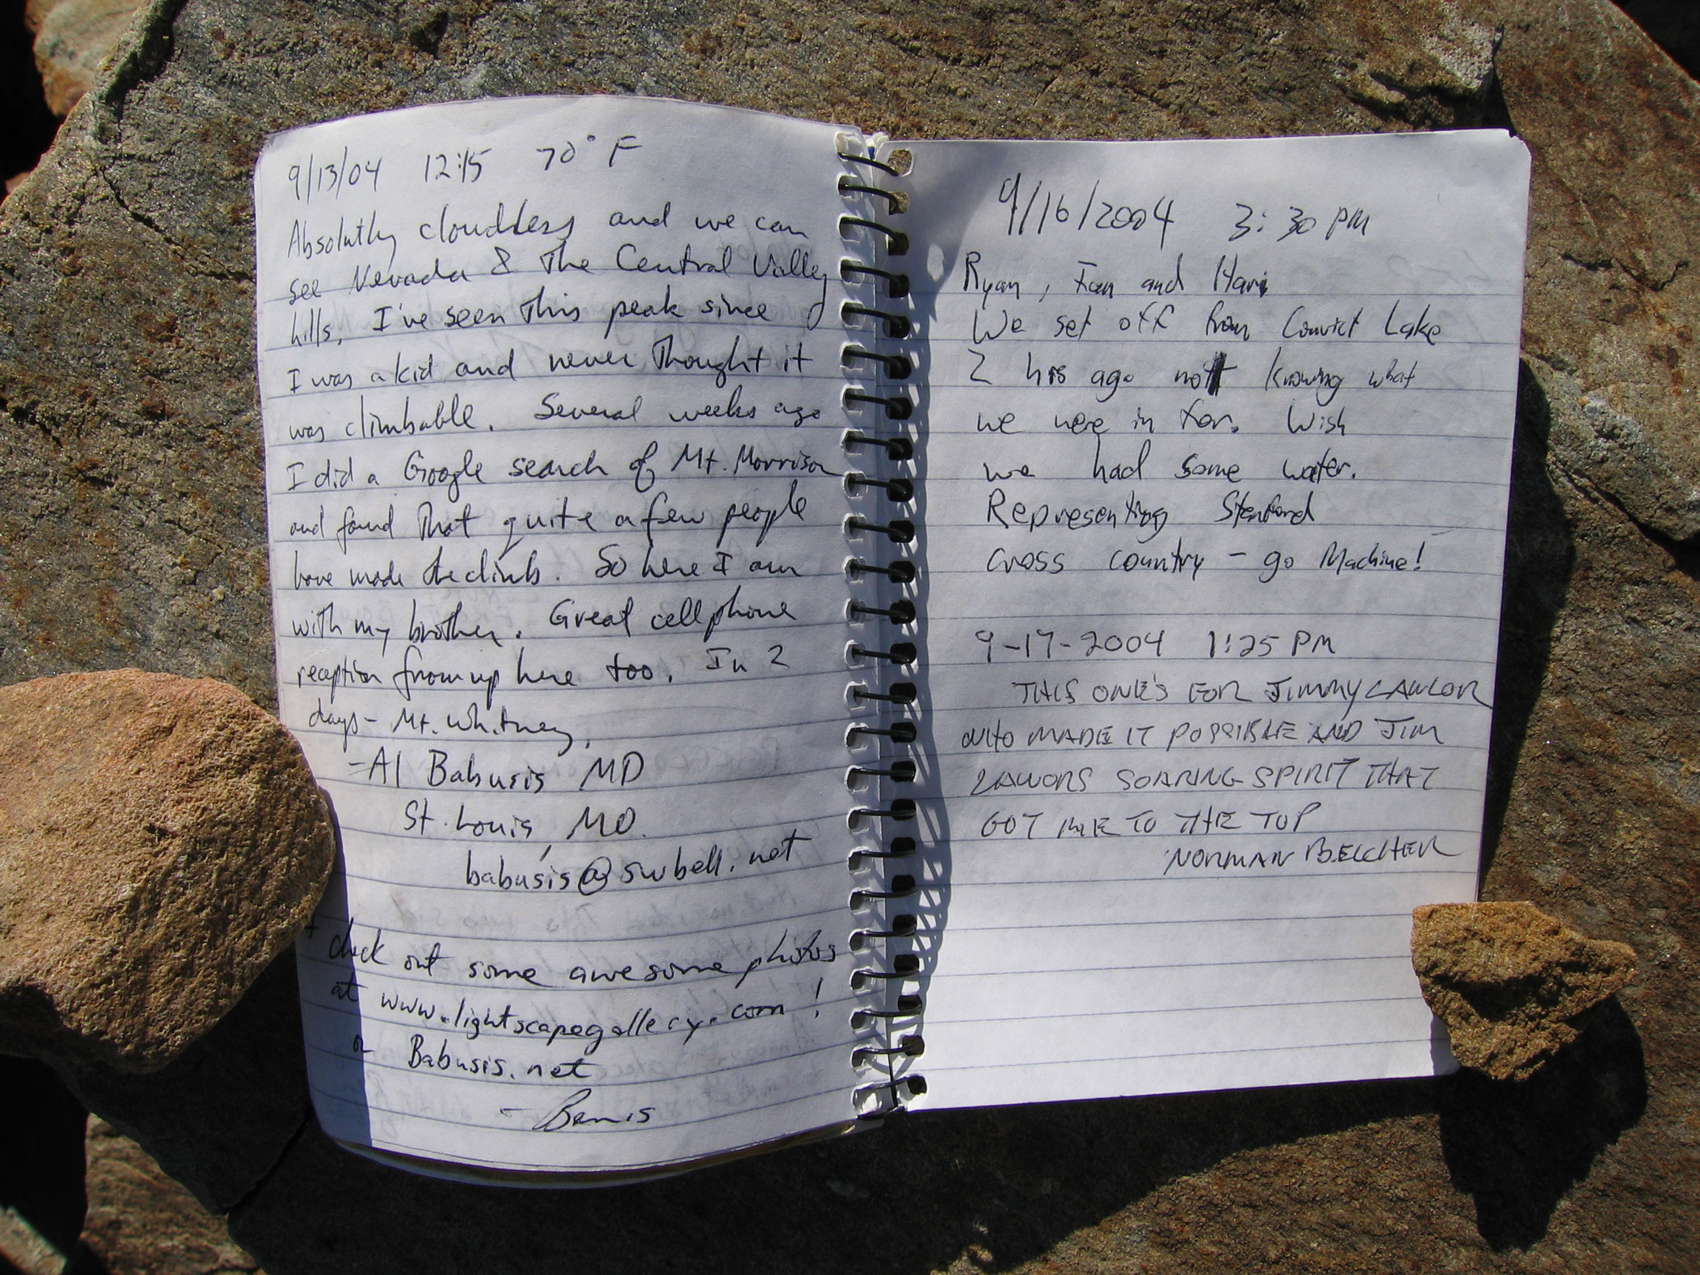 9/13/04 12:15 70° F
Absolutly cloudless and we can
see Nevada & The Central Valley
hills. I've seen This peak since
I was a kid and never Thought it
was climbable. Several weeks ago
I did a Google search of Mt. Morrison
and found That quite a few people
have made the climb. So here I am
with my brother. Great cell phone
reception from up here too. In 2
days - Mt. Whitney.
- Al Babusis MD
St. Louis, MO.
babusis@swbell.net
+ check out some awesome photos
at www.lightscapegallery.com!
or Babusis.net
-
9/16/2004 3:30 PM
Ryan, Ian and Hari
We set off from Convict Lake
2 hrs ago not knowing what
we were in for. Wish
we had some water.
Representing Stanford
cross country - go Machine!
9-17-2004 1:25 PM
THIS ONE'S FOR JIMMY LAWLOR
WHO MADE IT POSSIBLE AND JIM
LAWLORS SOARING SPIRIT THAT
GOT ME TO THE TOP
NORMAN BELCHER